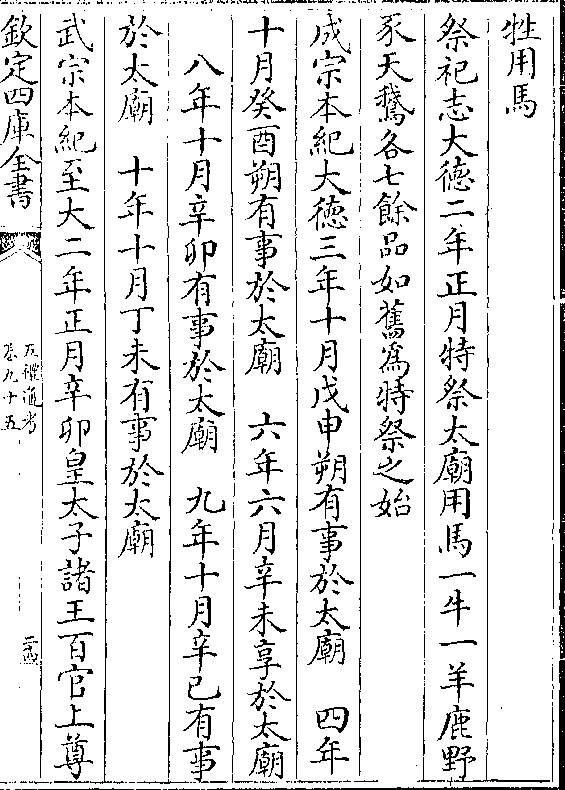 牲用馬
祭祀志大德二年正月特祭太廟用馬一牛一羊鹿野
豕天鵞各七餘品如舊爲特祭之始
成宗本紀大德三年十月戊申朔有事於太廟　四年
十月癸酉朔有事於太廟　六年六月辛未享於太廟
八年十月辛卯有事於太廟　九年十月辛巳有事
於太廟　十年十月丁未有事於太廟
武宗本紀至大二年正月辛卯皇太子諸王百官上尊
欽定四庫全書
五禮通考
卷九十五
二四